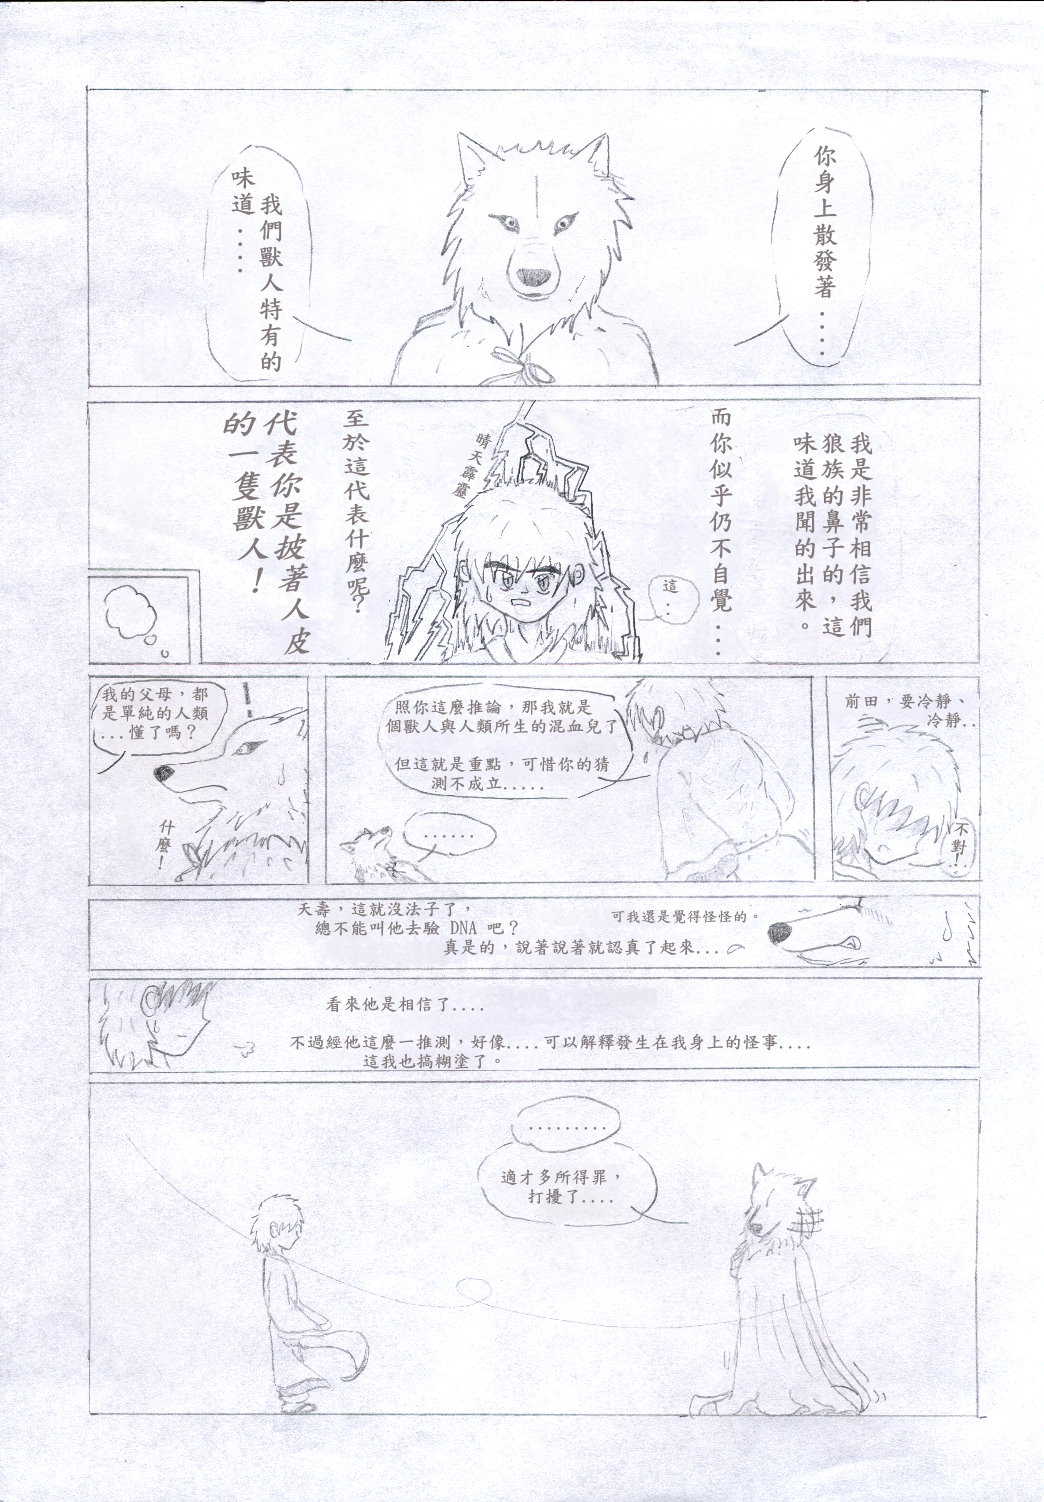 你身上散發著....
我們獸人特有的
味道....
我是非常相信我們
狼族的鼻子的，這
味道我聞的出來。
而你似乎仍不自覺...
這..
晴天霹靂
至於這代表什麼呢?
代表你是披著人皮
的一隻獸人！
前田，要冷靜、
冷靜..
不對!..
照你這麼推論，那我就是
個獸人與人類所生的混血兒了
但這就是重點，可惜你的猜
測不成立.....
......
我的父母，都
是單純的人類
...懂了嗎？
！
什麼！
可我還是覺得怪怪的。
天壽，這就沒法子了，
總不能叫他去驗 DNA 吧？
真是的，說著說著就認真了起來...
看來他是相信了....
不過經他這麼一推測，好像....可以解釋發生在我身上的怪事....
這我也搞糊塗了。
.........
適才多所得罪，
打擾了....